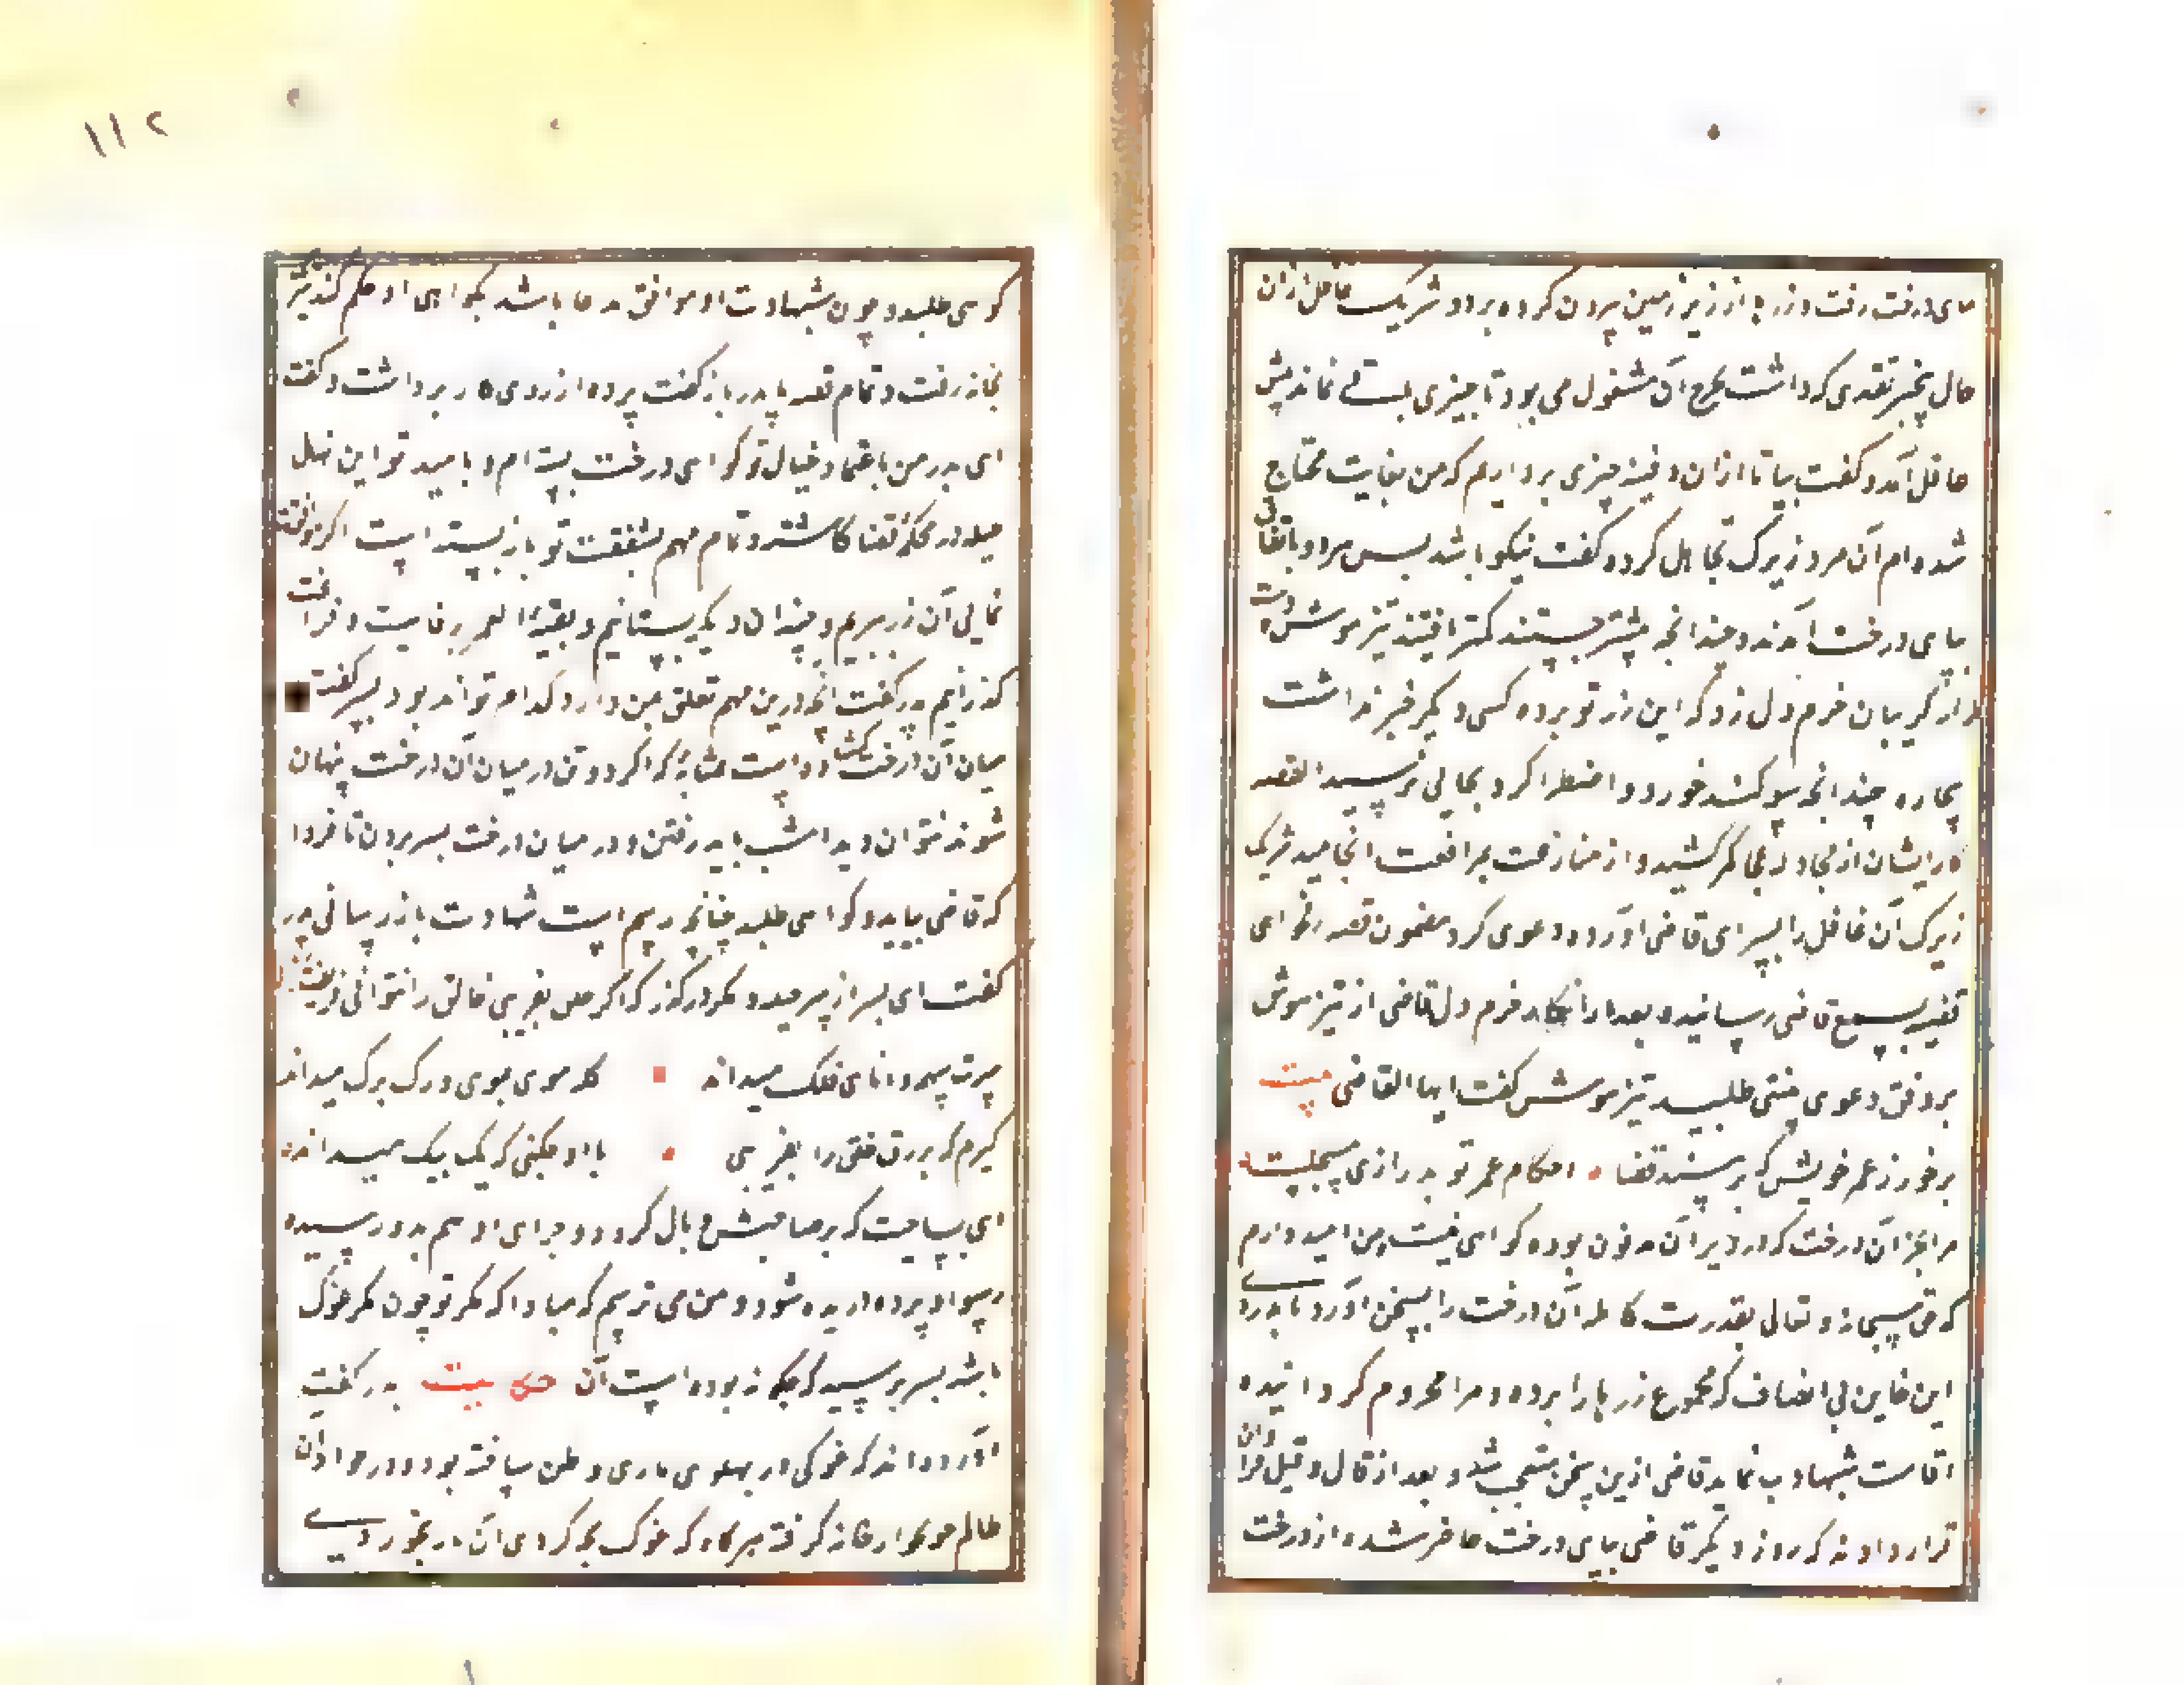 بپای درخت رفت و زرها از زیر زمین بیرون کرده ببرد و شریک غافل ازان
حال بیخبر نقدی که داشت بخرج آن مشغول می بود تا چیزی باقی نماند پیش
عاقل آمد و گفت بیا تا ازان دفینه چیزی برداریم که من بغایت محتاج
شده ام آن مرد زیرک تجاهل کرده گفت نیکو باشد پس هر دو باتفاق
بپای درخت آمدند و چندانچه بیشتر جستند کمتر یافتند تیزهوش دست
در گریبان خرم دل زد که این زر تو برده کسی دیگر خبر نداشت
بیچاره چندانچه سوگند خورد و اضطرا کرد بجایی نرسید القصه
کار ایشان از مجادله بمحاکمه کشید و از منازعت بمرافعت انجامید شریک
زیرک آن غافل را بسرای قاضی آورده دعوی کرد مضمون قصه بفحوای
قضیه بسمع قاضی رسانیده بعد از انکار خرم دل قاضی از تیزهوش
بر وفق دعوی بینتی طلبید تیزهوش گفت ایها القاضی بیت
برخور ز عمر خویش که بر مسند قضا احکام عمر تو بدرازی مسجلست
مرا بجز آن درخت که در زیر آن مدفون بوده گواهی نیست و من امیدوارم
که حق سبحانه و تعالی بقدرت کامله آن درخت را بسخن آورد تا بدزدی
این خاین بی انصاف که مجموع زرها را برده و مرا محروم گردانیده
اقامت شهادت نماید قاضی ازین سخن متعجب شد و بعد از قال و قیل فراوان
قرار دادند که روز دیگر قاضی بپای درخت حاضر شده از درخت
گواهی طلبد و چون شهادت او موافق مدعا باشد بگواهی او حکم کند
بخانه رفت و تمام قصه با پدر باز گفت پرده از روی کار برداشت و گفت
ای پدر من باعتماد خیال تو گواهی درخت بسته ام و بامید تو این نهال
حیله در محکمه قضا کاشته و تمام مهم بشفقت تو باز بسته است اگر موافقت
نمایی آن زر ببریم و چندان دیگر بستانیم و بقیة العمر برفاهیت و فراغت
گذرانیم پدر گفت آنچه درین مهم تعلق بمن دارد کدام تواند بود پسر گفت
میان آن درخت گشاده است بمثابه که اگر دو تن در میان آن درخت پنهان
شوند نتوان دید امشب باید رفتن و در میان درخت بسر بردن تا فردا
که قاضی بیاید و گواهی طلبد چنانچه رسم است شهادت باز رسانی پدر
گفت ای پسر از سر حیله و مکر درگذر که اگر خلق بفریبی خالق را نتوانی فریفت
سرت همه دانای فلک میداند کو موی بموی و رگ برگ میداند
گیرم که بزرق خلق را بفریبی با او چکنی که یک بیک میداند
ای بسا حیلت که بر صاحبش وبال گردد و جزای او هم بدو رسیده
رسوا و پرده دریده شود و من می ترسم که مبادا که مکر تو چون مکر غوک
باشد پسر پرسید که چگونه بوده است آن حکایت پدر گفت
آورده اند که غوکی در پهلوی ماری وطن ساخته بود و در جوار آن
ظالم خونخوار خانه گرفته هرگاه که غوک بچه کردی آن مار بخوردی
۱۱۲